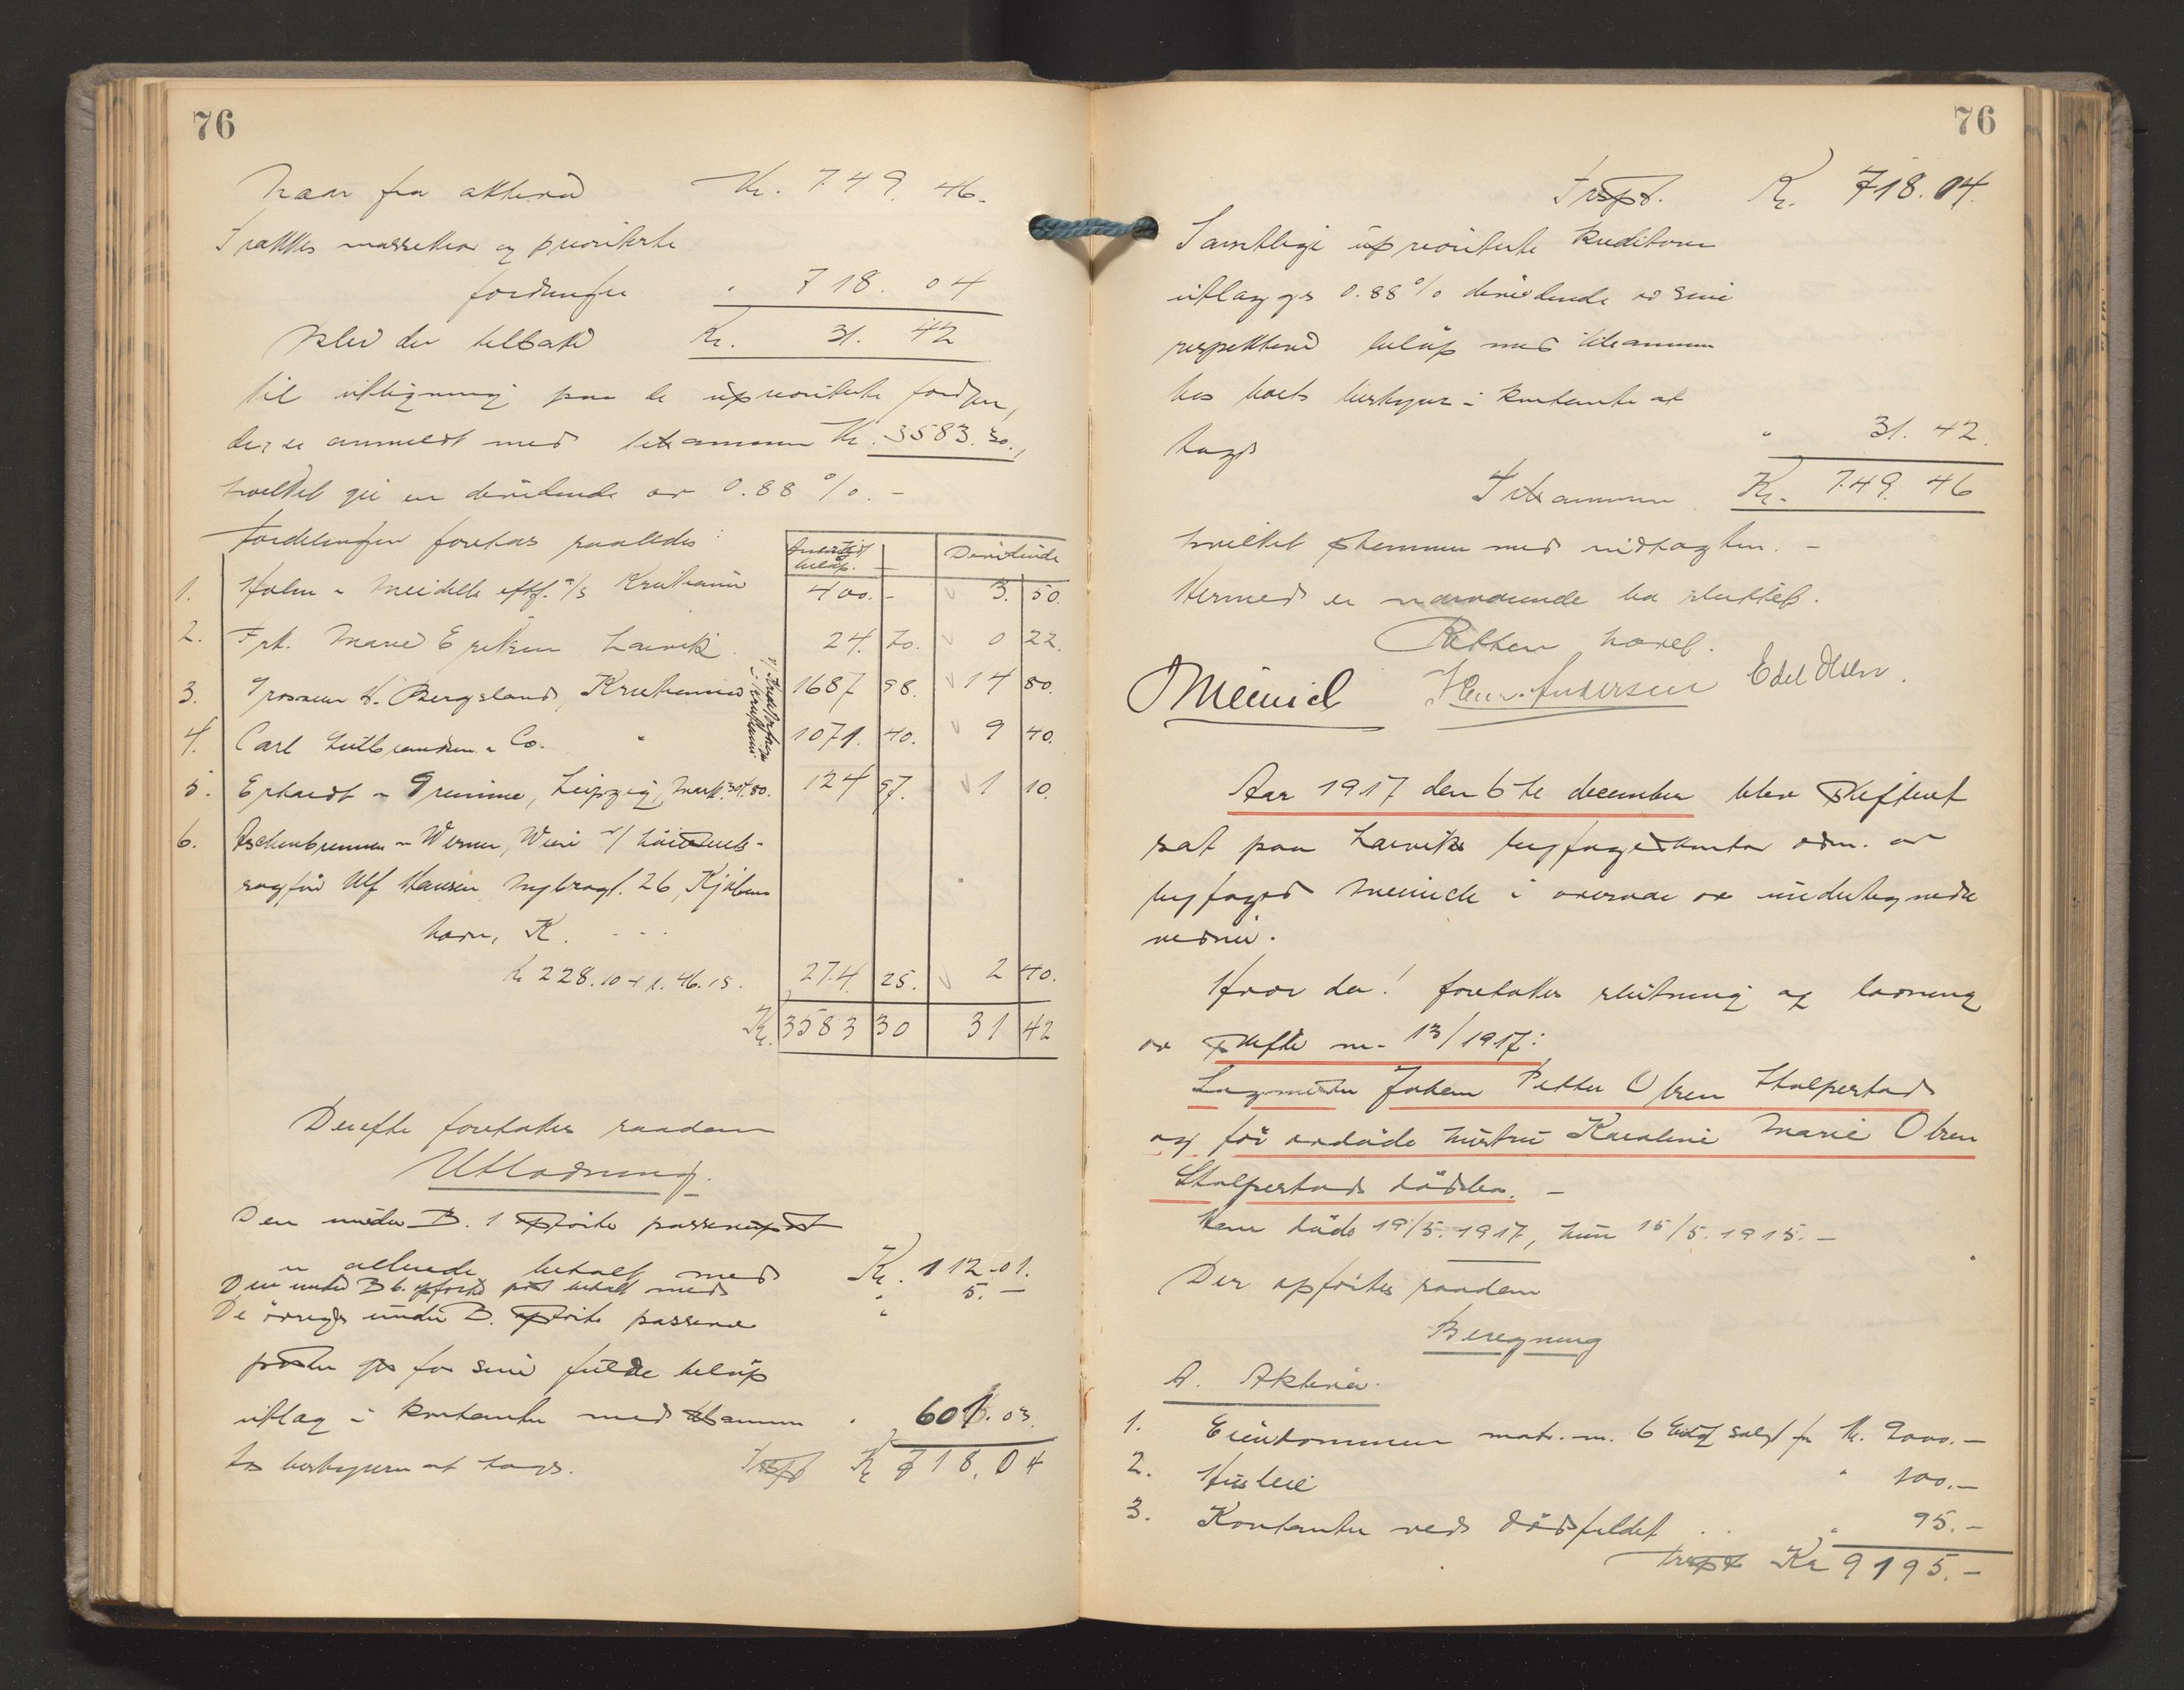 76
Naar fra aktiva Kr. 749. 46.
Trækkes massekrav og prioriterte
fordringer " 718. 04
Blev der tilbake Kr. 31. 42
til utligning paa de uprioriterte fordr.,
der er anmeldt med tilsammen Kr. 3583.30.,
hvilket gir en dividende av 0.88 %. -
Fordelingen foretas saaledes:
Anmeldt beløp. Dividende
1. Holm & Meidells eftf. A/S Kristiania 400. - 3. 50.
2. Frk. Marie Eriksen Larvik. 24. 70. 0 22.
3. Grosserer H. Bergsland, Kristiania 1687 98. 14 80.
4. Carl Gulbrandsen & Co. " 1071. 40. 9 40.
v/ Kreditorforen. i Kristiania
5. Erhardt & Gremme, Leipzig, mark 304.80. 124 97. 1 10.
6. Aschenbrenner & Werner, Wien v/ høiesterets-
sagfør Ulf Hansen Nybrogt. 26, Kjøben-
havn, K. - - -
Kr 228.10 + r. 46.15. 274. 25. 2 40.
Kr. 3583 30 31 42
Derefter foretokes saadan
Utlodning.
Den under B. 1 opførte passivpost
er allerede betalt med Kr. 112.01.
Den under B 6. opførte post betalt med " 5. -
De øvrige under B. opførte passiva
poster for sine fulde beløp
utlag i kontanter med tilsammen " 601. 03.
hos bestyreren at tages. Trspt Kr 718. 04
76
Trspt. Kr. 718. 04.
Samtlige uprioriterte kreditorer
utlægges 0.88 % dividende av sine
respektive beløp med tilsammen
hos boets bestyrer i kontanter at
tage " 31. 42.
Tilsammen Kr. 749. 46
hvilket stemmer med indtægten. -
Hermed er nærværende bo sluttet.
Retten hævet.
Meinich Henr. Andersen Edel Olsen.
Aar 1917 den 6te december blev skifteret
sat paa Larviks byfogedkontor adm. av
byfoged Meinich i overvær av undertegnede
vidner.
Hvor da! foretokes slutning og lodning
av skifte nr. 13/1917:
Sagmester Johan Petter Olsen Stolpestads
og før avdøde hustru Karoline Marie Olsen
Stolpestads dødsbo. -
Han døde 19/5. 1917, hun 15/5. 1915. -
Der opførtes saadan
Beregning
A. Aktiva.
1. Eiendommen matr. nr. 6 solgt for Kr. 9000. -
2. Husleie " 100. -
3. Kontanter ved dødsfaldet " 95. -
Trspt Kr 9195. -